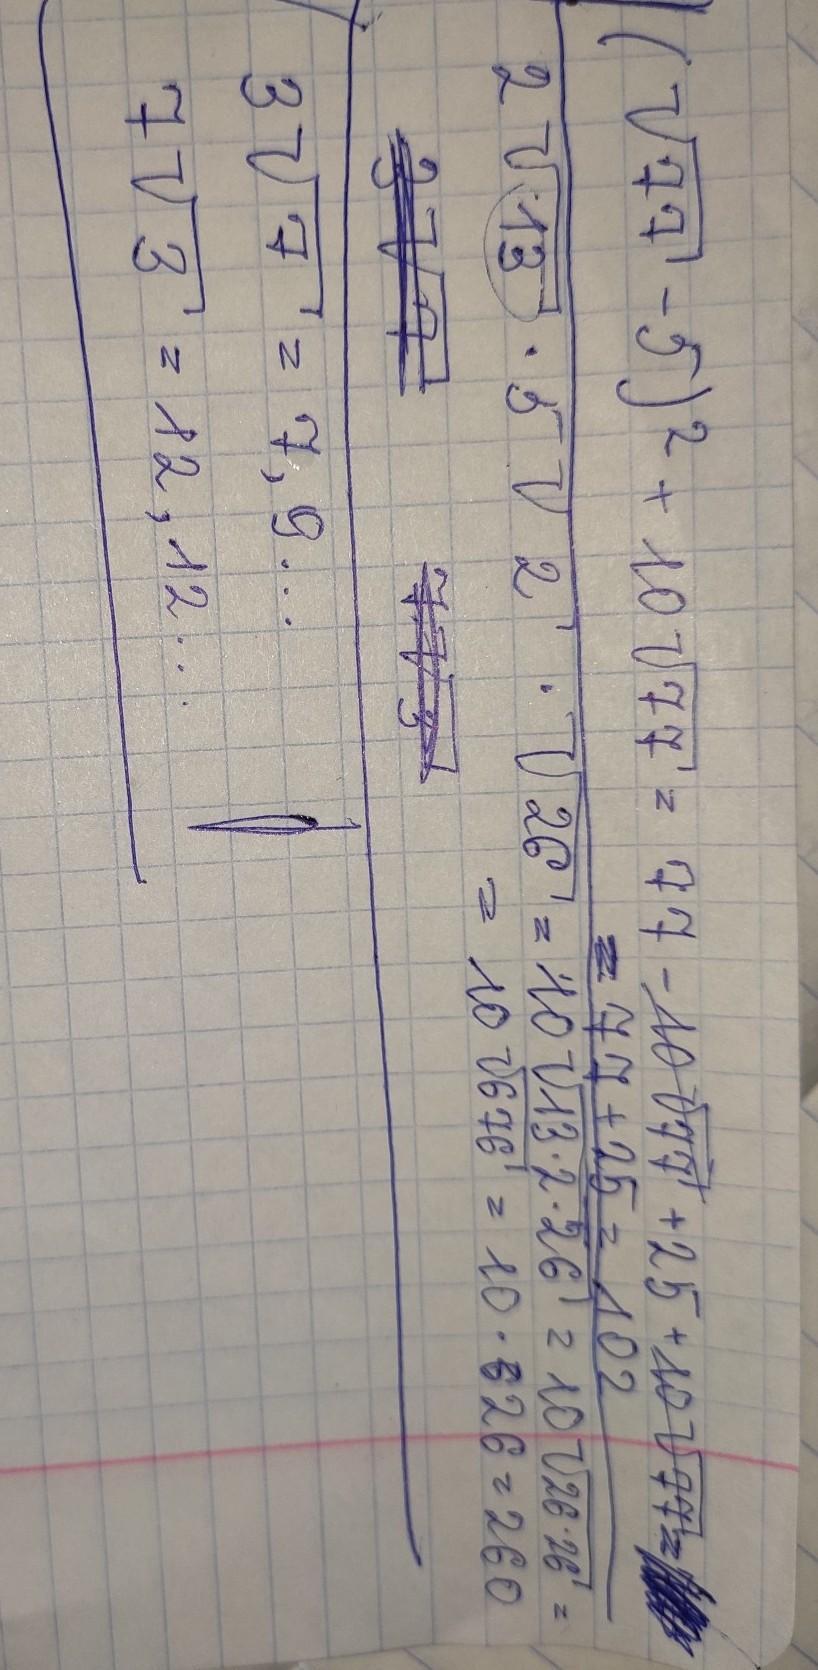 (√77 - 5)² + 10√77 = 77 - 10√77 + 25 + 10√77 =
= 77 + 25 = 102
2√13 · 5√2 · √26 = 10√13·2·26 = 10√26·26 =
= 10√676 = 10 · 26 = 260
3√7 = 7,9...
7√3 = 12,12...